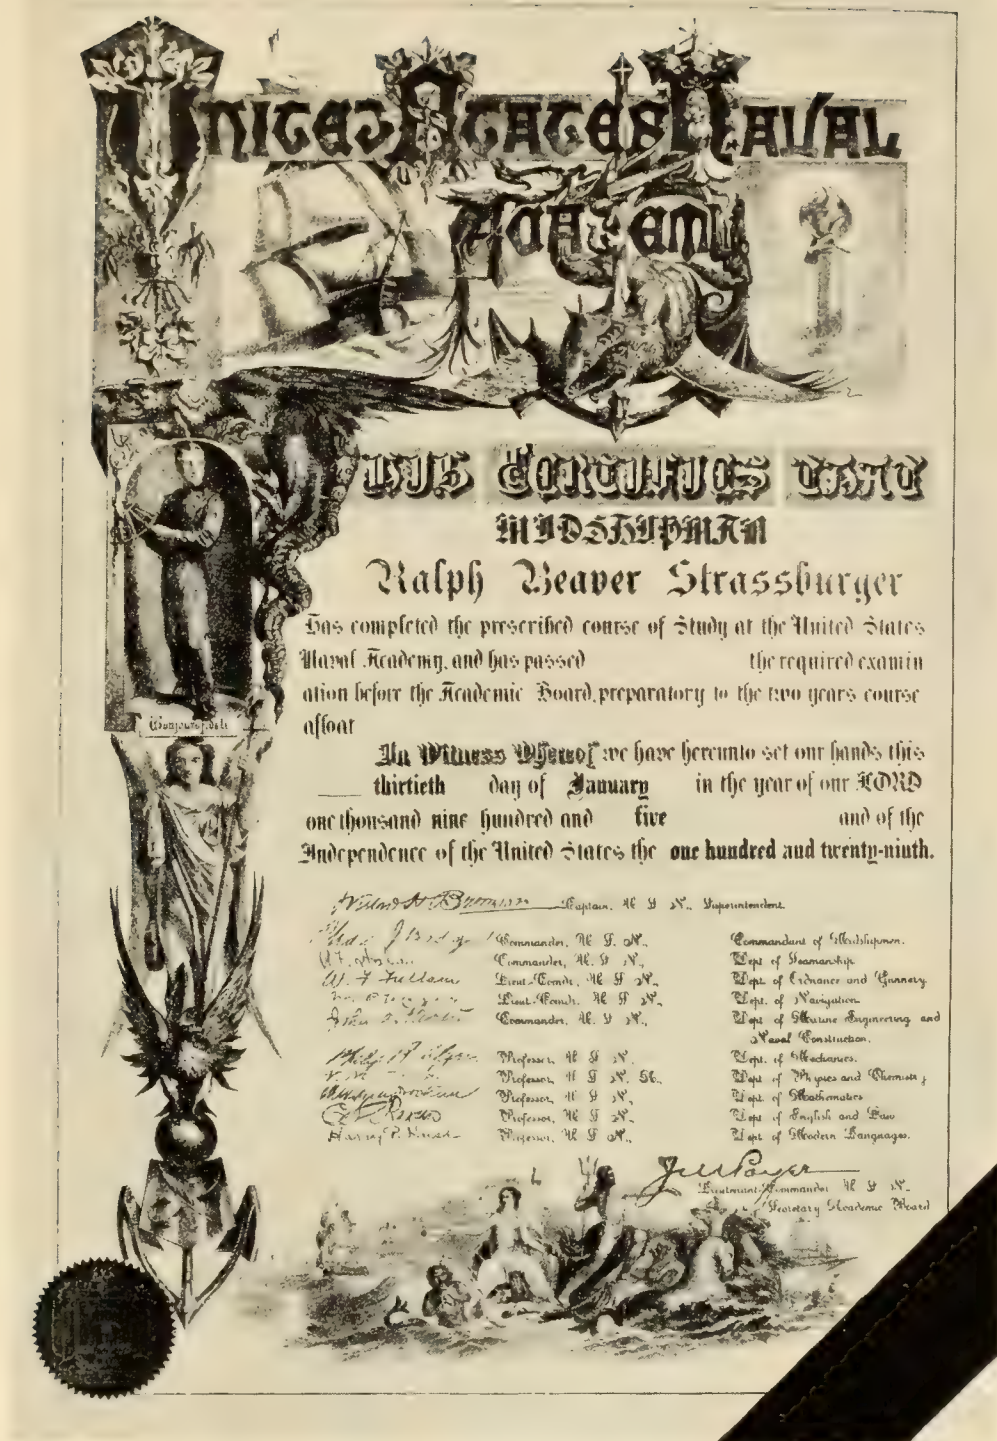 United States Naval
Academy
This Certifies that
MIDSHIPMAN
Ralph Beaver Strassburger
Has completed the prescribed course of Study at the United States
Naval Academy, and has passed the required examin
ation before the Academic Board, preparatory to the two years course
afloat
In Witness Whereof we have hereunto set our hands this
thirtieth day of January in the year of our LORD
one thousand nine hundred and five and of the
Independence of the United States the one hundred and twenty-ninth.
Willard H Brownson Captain, U S N., Superintendent.
Commander, U. S. N., Commandant of Midshipmen.
Commander, U. S N., Dept of Seamanship
W. F Fullam Lieut-Comdr, U S N., Dept. of Ordnance and Gunnery
Lieut-Comdr. U S N., Dept. of Navigation
Commander, U. S N., Dept of Marine Engineering and
Naval Construction.
Philip R Alger Professor, U S N. Dept. of Mechanics.
Professor, U S N. Dept of Physics and Chemistry
Professor, U S N., Dept of Mathematics
Professor, U S N. Dept of English and Law
Professor, U S N., Dept of Modern Languages.
Lieutenant-Commander U S N.
Secretary Academic Board